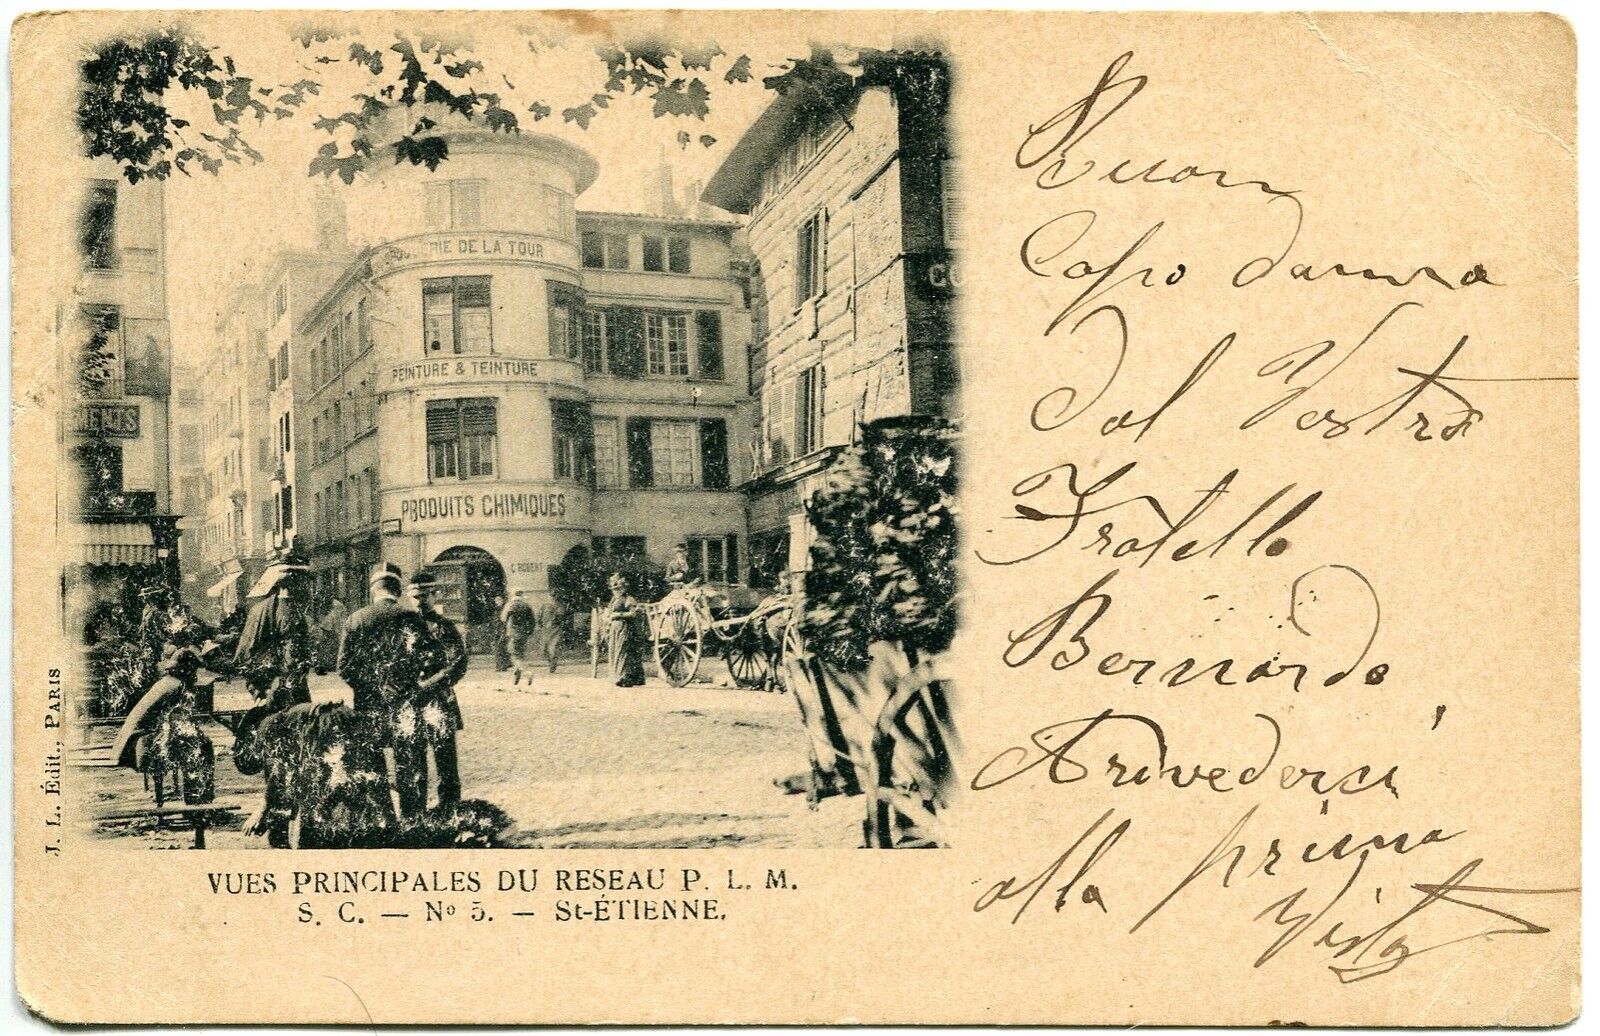 DE LA TOUR
PEINTURE & TEINTURE
PRODUITS CHIMIQUES
C. ROBERT
MENTS
J. L. Édit., PARIS
VUES PRINCIPALES DU RESEAU P. L. M.
S. C. — No 5. — St-ÉTIENNE.
Buon
Capo danno
Dal Vostro
Fratello
Bernardo
Arivederci
alla prima
Vista